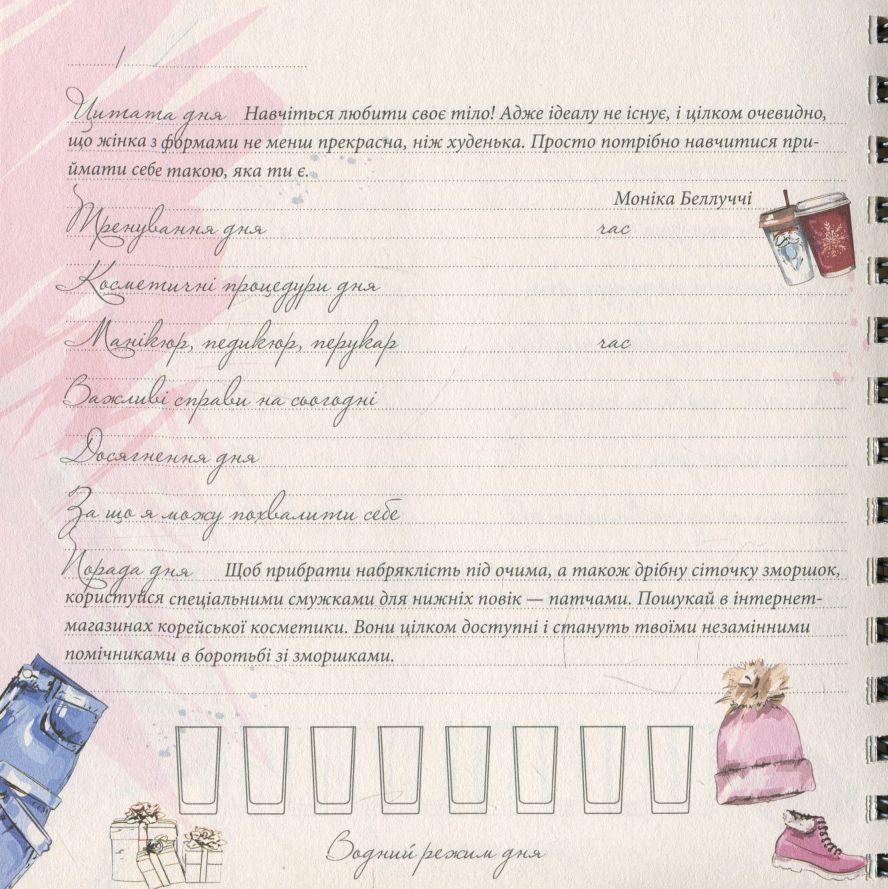 / /
Цитата дня Навчіться любити своє тіло! Адже ідеалу не існує, і цілком очевидно,
що жінка з формами не менш прекрасна, ніж худенька. Просто потрібно навчитися при-
ймати себе такою, яка ти є.
Моніка Беллуччі
Тренування дня час
Косметичні процедури дня
Манікюр, педикюр, перукар час
Важливі справи на сьогодні
Досягнення дня
За що я можу похвалити себе
Порада дня Щоб прибрати набряклість під очима, а також дрібну сіточку зморшок,
користуйся спеціальними смужками для нижніх повік — патчами. Пошукай в інтернет-
магазинах корейської косметики. Вони цілком доступні і стануть твоїми незамінними
помічниками в боротьбі зі зморшками.
Водний режим дня